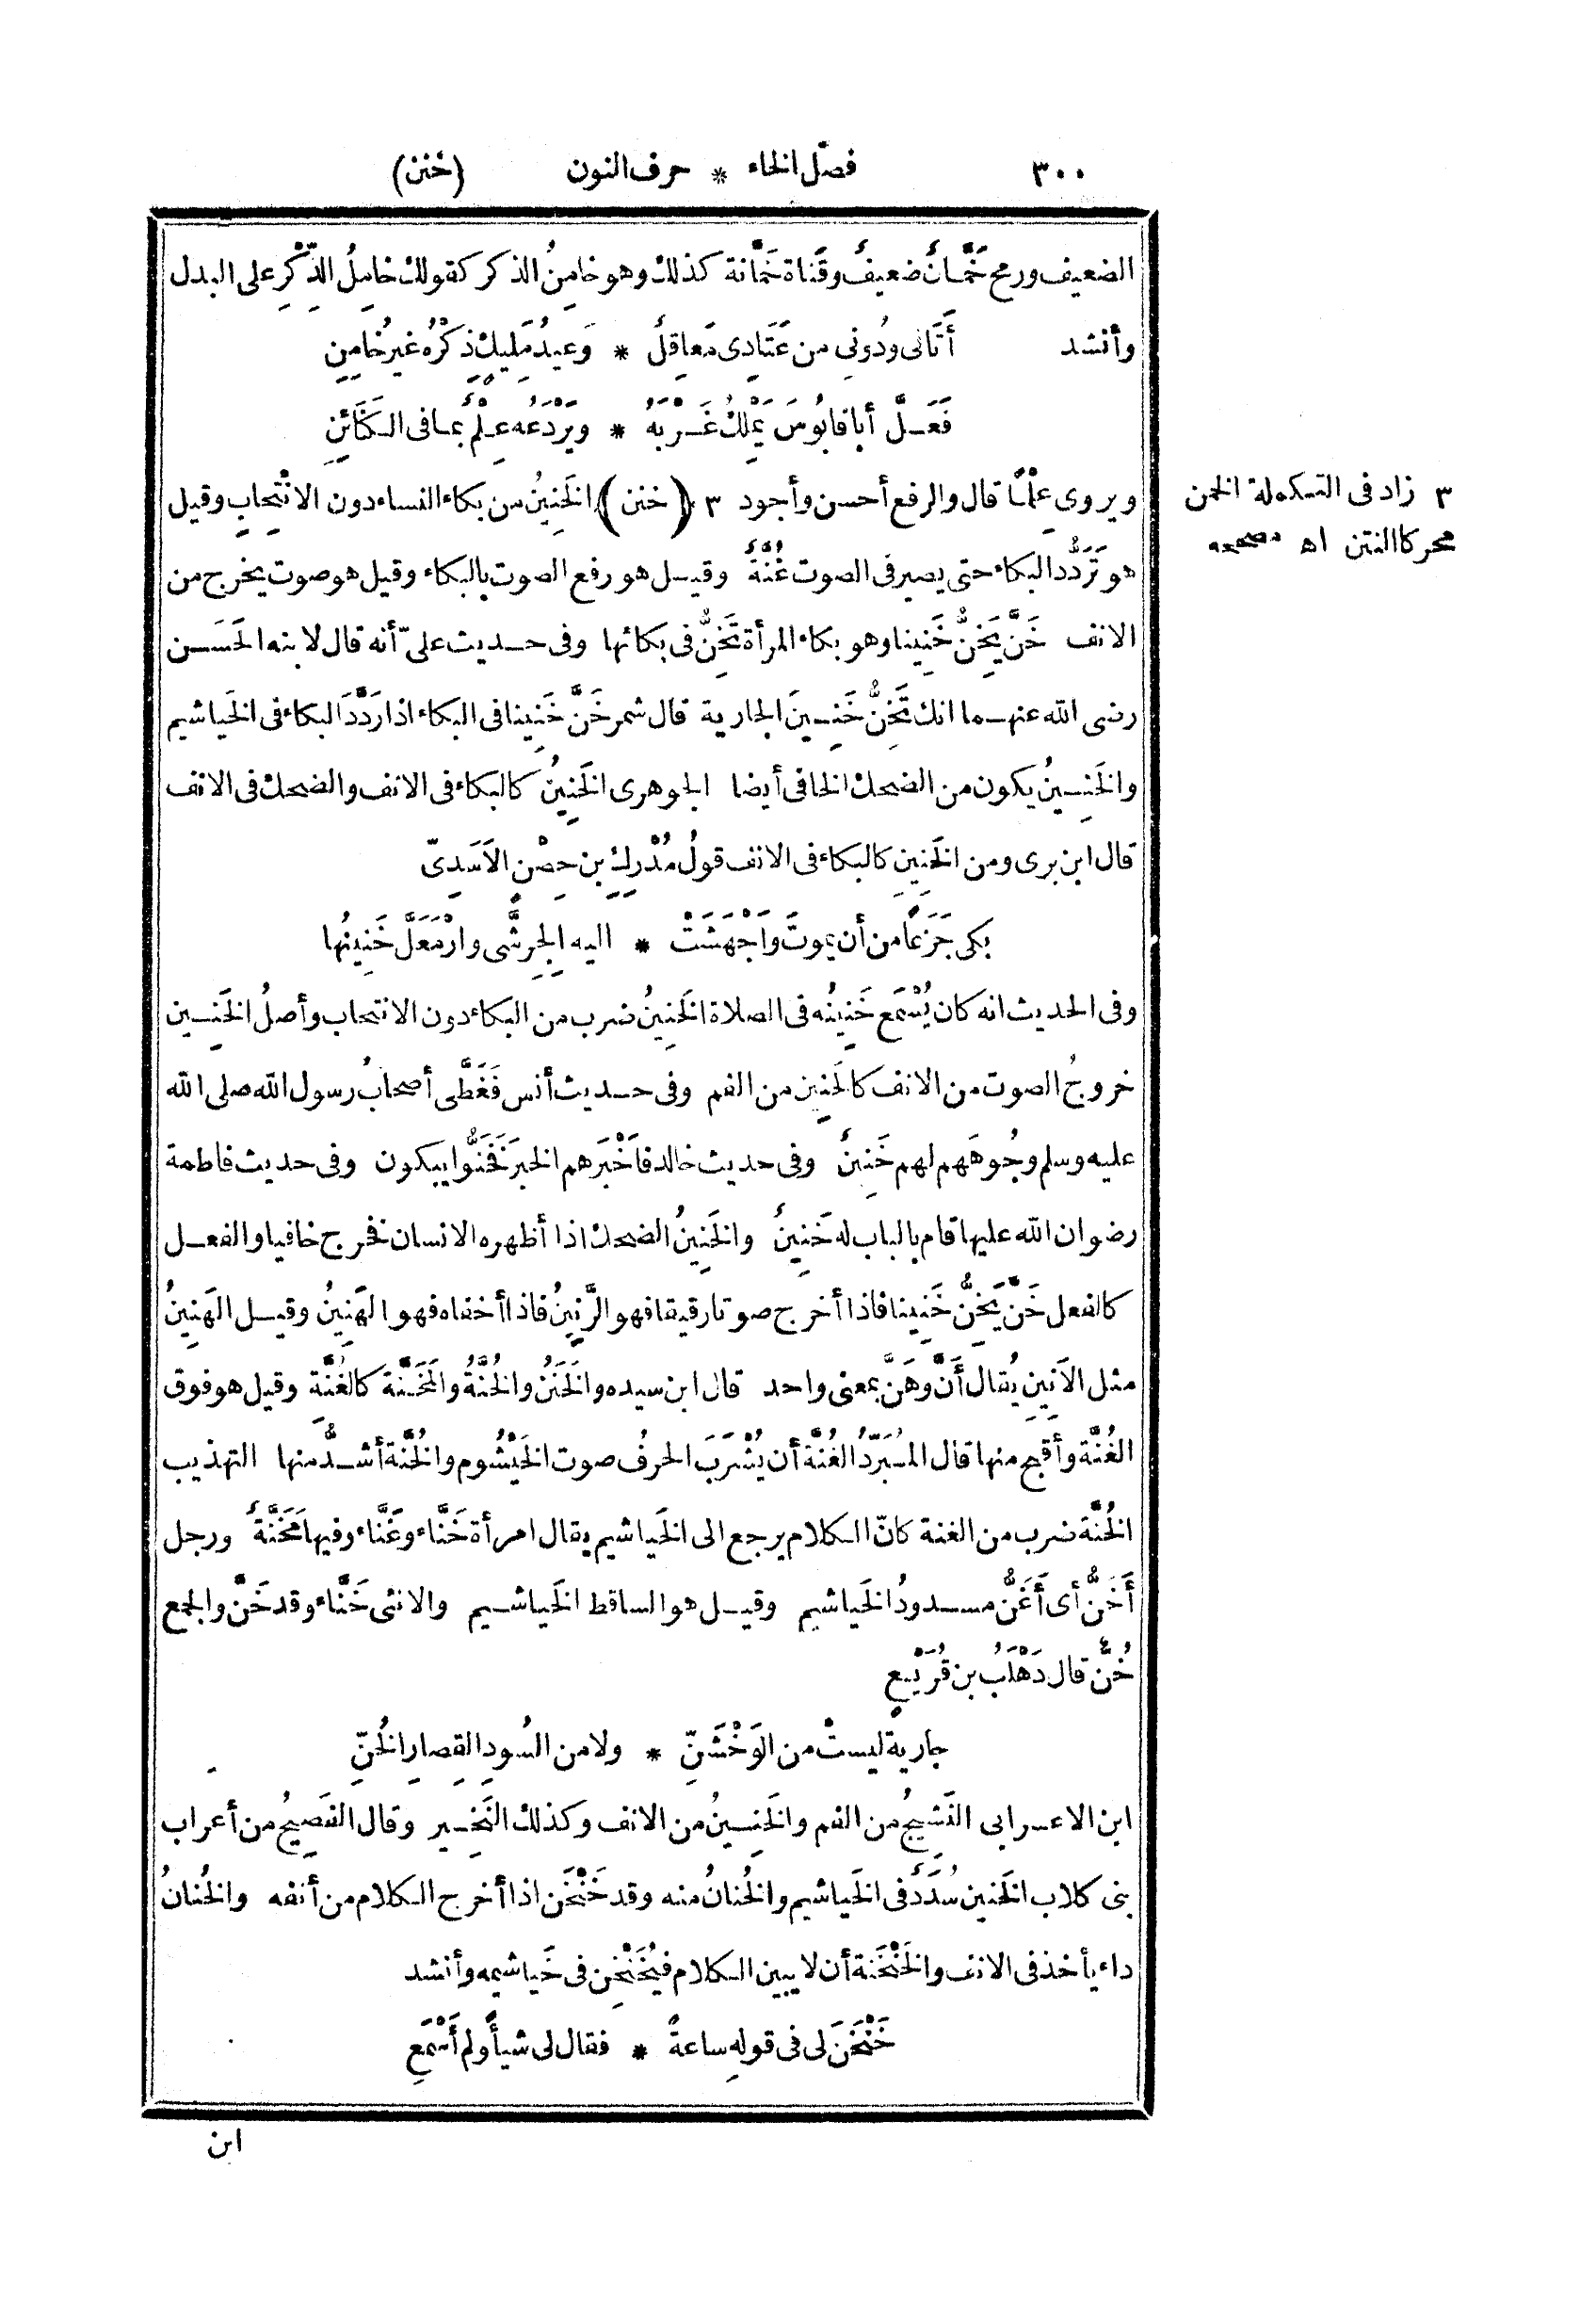 ٣٠٠ فصل الخاء * حرف النون (خنن)
الضعيف ورمح خَمَّانٌ ضعيفٌ وقَناة خَمَّانة كذلك وهو خامِنُ الذكر كقولك خامِلُ الذِّكْرِ على البدل
وأنشد أَتَانى ودُونِى من عَتَادِى مَعاقِلٌ * وَعِيدُ مَلِيكٍ ذِكْرُه غيرُ خامِنِ
فَعَلَّ أبا قابُوسَ يَمْلِكُ غَرْبَهُ * ويَرْدَعُه عِلْمٌ بما فى الكَنَائِنِ
ويروى عِلْمًا قال والرفع أحسن وأجود ٣ (خنن) الخَنِينُ من بكاء النساء دون الانْتِحابِ وقيل
هو تَرَدُّد البكاء حتى يصير فى الصوت غُنَّةٌ وقيل هو رفع الصوت بالبكاء وقيل هو صوت يخرج من
الانف خَنَّ يَخِنُّ خَنِينا وهو بكاء المرأة تَخِنُّ فى بكائها وفى حديث علىّ أنه قال لابنه الحَسَن
رضى الله عنهما انك تَخِنُّ خَنِينَ الجارية قال شمر خَنَّ خَنِينا فى البكاء اذا رَدَّدَ البكاء فى الخَياشيم
والخَنِينُ يكون من الضحك الخافى أيضا الجوهرى الخَنِينُ كالبكاء فى الانف والضحك فى الانف
قال ابن برى ومن الخَنِينِ كالبكاء فى الانف قولُ مُدْرِكِ بن حِصْنٍ الاَسَدِىّ
بكى جَزَعًا من أن يموتَ وأَجْهَشَتْ * اليه الجِرِشَّى وارْمَعَلَّ خَنِينُها
وفى الحديث انه كان يُسْمَع خَنِينُه فى الصلاة الخَنِينُ ضرب من البكاء دون الانتحاب وأصلُ الخَنِين
خروجُ الصوت من الانف كالحَنِين من الفم وفى حديث أنس فَغَطَّى أصحابُ رسول الله صلى الله
عليه وسلم وجُوهَهم لهم خَنِينٌ وفى حديث خالد فأَخْبَرهم الخبرَ فَخَنُّوا يبكون وفى حديث فاطمة
رضوان الله عليها قام بالباب له خَنِينٌ والخَنِينُ الضحك اذا أظهره الانسان فخرج خافيا والفعل
كالفعل خَنَّ يَخِنُّ خَنِينا فاذا أخرج صوتا رقيقا فهو الرَّنِينُ فاذا أخفاه فهو الهَنِينُ وقيل الهَنِينُ
مثل الاَنِينِ يُقال أَنَّ وهَنَّ بمعنى واحد قال ابن سيده والخَنَنُ والخُنَّةُ والمَخَنَّة كالغُنَّةِ وقيل هو فوق
الغُنَّة وأقبح منها قال المُبَرِّدُ الغُنَّة أن يُشْرَبَ الحرفُ صوت الخَيْشُوم والخُنَّة أشدُّ منها التهذيب
الخُنَّة ضرب من الغنة كانّ الكلام يرجع الى الخَياشيم يقال امرأة خَنَّاء وغَنَّاء وفيها مَخَنَّةٌ ورجل
أَخَنُّ أى أَغَنُّ مسدودُ الخَياشيم وقيل هو الساقط الخَياشيم والانثى خَنَّاء وقد خَنَّ والجمع
خُنٌّ قال دَهْلَبُ بن قُرَيْعٍ
جارية ليستْ من الوَخْشَنِّ * ولا من السُودِ القِصارِ الخُنِّ
ابن الاعرابى النَشِيجُ من الفم والخَنِينُ من الانف وكذلك النَخِير وقال الفَصِيحُ من أعراب
بنى كلاب الخَنين سُدَدٌ فى الخَياشيم والخُنانُ منه وقد خَنْخَن اذا أخرج الكلام من أنفه والخُنانُ
داء يأخذ فى الانف والخَنْخَنة أن لا يبين الكلام فيُخَنْخِن فى خَياشيمه وأنشد
خَنْخَنَ لى فى قولِه ساعةً * فقال لى شيأً ولم أَسْمَعِ
ابن
٣ زاد فى التكملة الخمن
محركا النتن اه مصححه